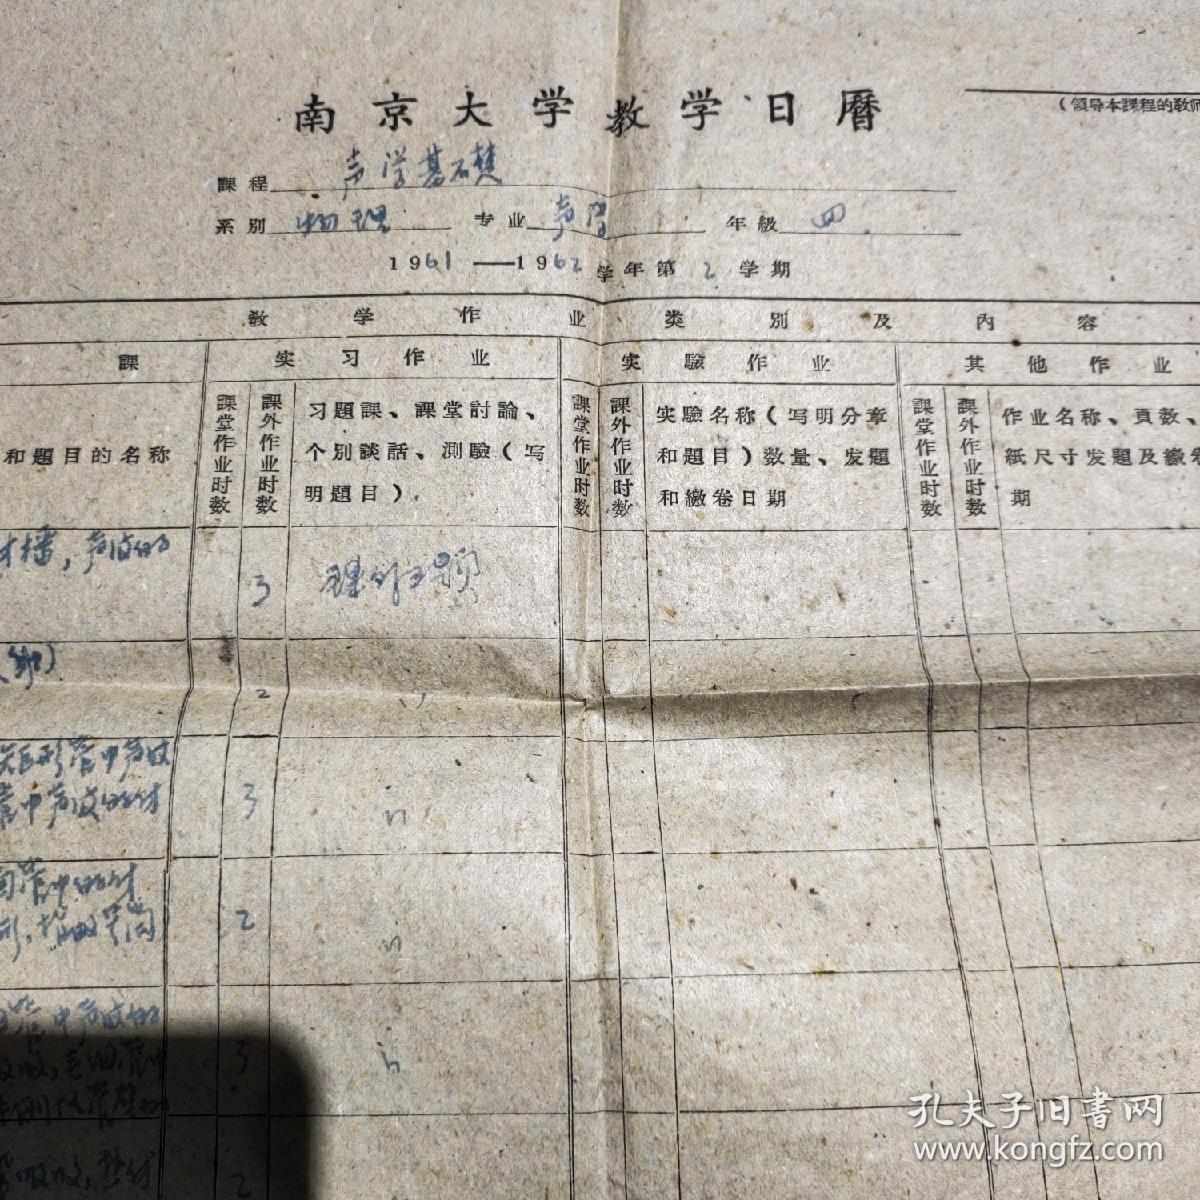 南京大学教学日曆
（領导本課程的教师
課程 声学基础
系别 物理 专业 声学 年級 四
1961——1962学年第2学期
教学作业类别及内容
課 实习作业 实驗作业 其他作业
和題目的名称
課堂作业时数
課外作业时数
习題課、課堂討論、
个別談話、測驗（写
明題目）.
課堂作业时数
課外作业时数
实驗名称（写明分章
和題目）数量、发題
和繳卷日期
課堂作业时数
課外作业时数
作业名称、頁数、
紙尺寸发題及繳卷
期
播，声波的
3 課外习題
2 〃
矩形管中声波
管中声波的
3 〃
2 〃
管中声波的
3 〃
2
孔夫子旧书网
www.kongfz.com